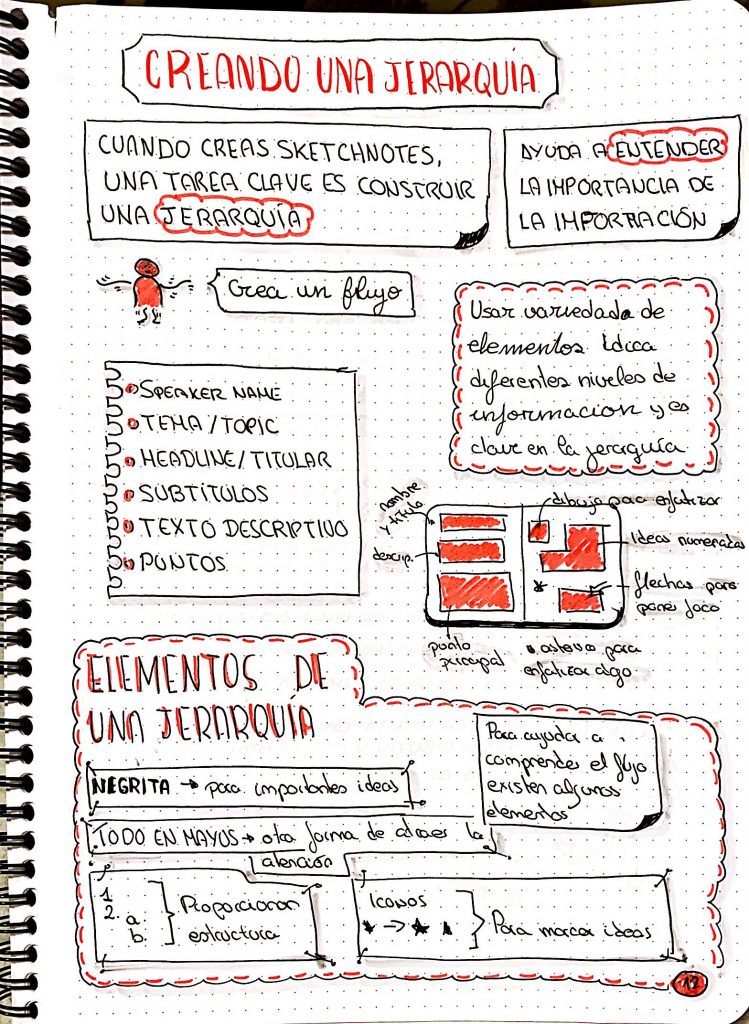 CREANDO UNA JERARQUÍA
CUANDO CREAS SKETCHNOTES,
UNA TAREA CLAVE ES CONSTRUIR
UNA JERARQUÍA
AYUDA A ENTENDER
LA IMPORTANCIA DE
LA IMFORMACIÓN
Crea un flujo
Usar variedada de
elementos idica
diferentes niveles de
informacion y es
clave en la jerarquía
SPEAKER NAME
TEMA/TOPIC
HEADLINE/TITULAR
SUBTÍTULOS
TEXTO DESCRIPTIVO
PUNTOS
nombre
y titulo
descrip.
punto
principal
dibujo para enfatizar
Ideas numeradas
flechas para
poner foco
para
enfatizar algo
ELEMENTOS DE
UNA JERARQUÍA
Para ayudar a
comprender el flujo
existen algunos
elementos
NEGRITA → para importantes ideas
TODO EN MAYUS → otra forma de atraer la
atención
1.
2.
a.
b.
Proporcionar
estructura
Iconos
→
Para marcar ideas
12